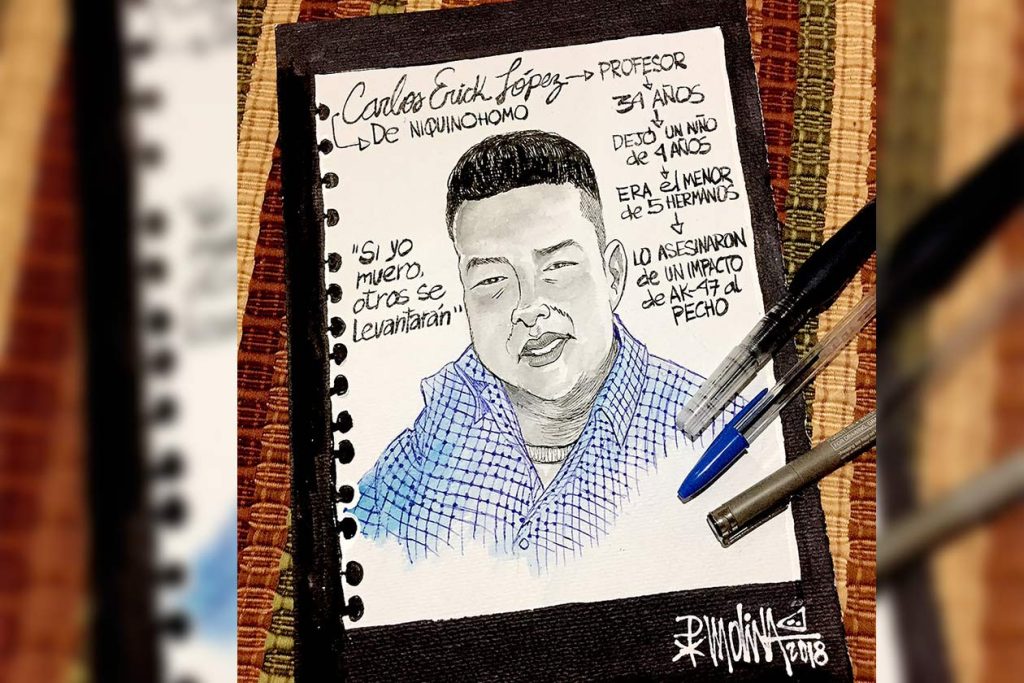 Carlos Erick López → PROFESOR
De NIQUINOHOMO
34 AÑOS
DEJÓ UN NIÑO
de 4 AÑOS
ERA el MENOR
de 5 HERMANOS
LO ASESINARON
de UN IMPACTO
de AK-47 al
PECHO
"Si yo
muero,
otros se
levantarán"
PX MOLINA
2018